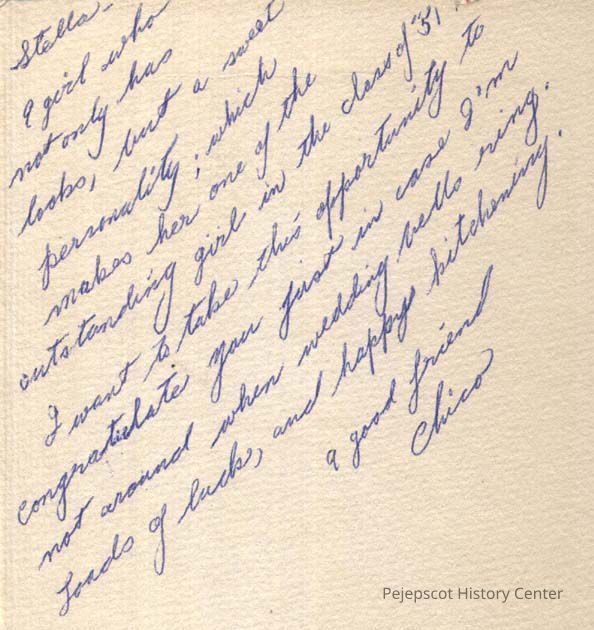 Stella -
A girl who
not only has
looks, but a sweet
personality; which
makes her one of the
outstanding girl in the class of '51.
I want to take this opportunity to
congratulate you first in case I'm
not around when wedding bells ring.
Loads of luck, and happy kitchening.
A good friend
Chico
Pejepscot History Center